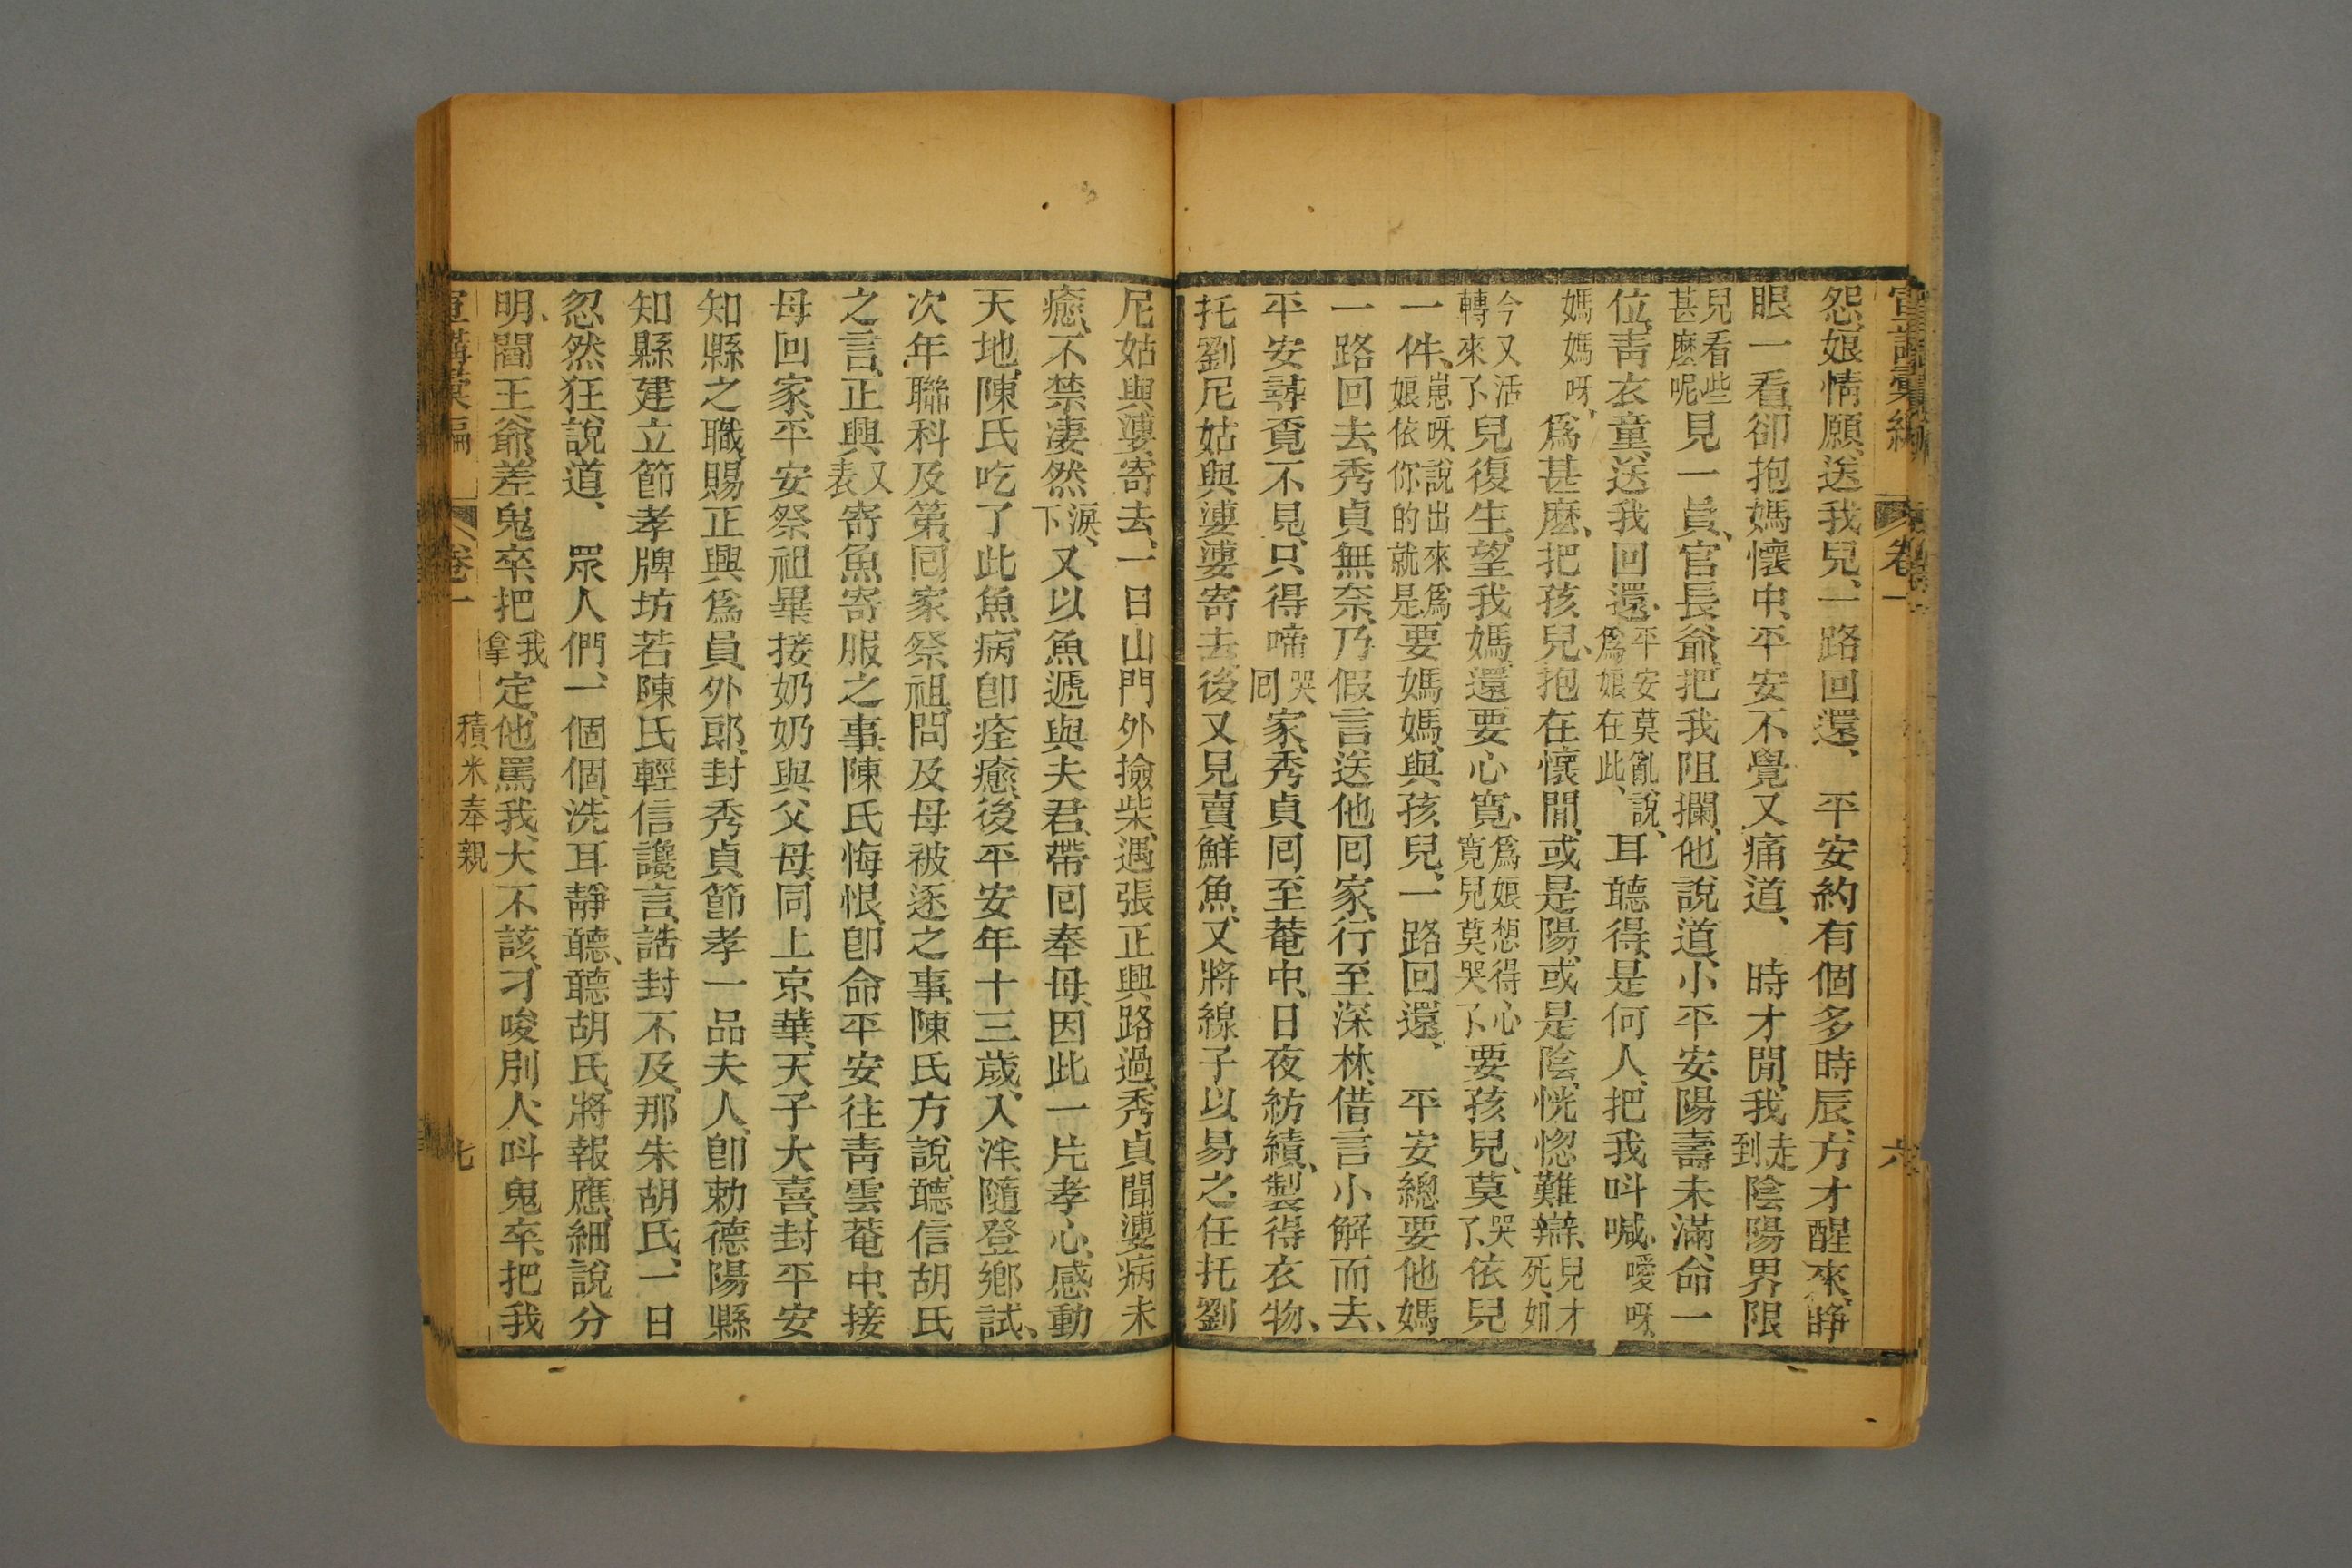 宣講彙編 卷一 六
怨、娘情願、送我兒、一路回還、 平安約有個多時辰、方才醒來、睁
眼一看、卻抱媽懷中、平安不覺又痛道、 時才間、我走到陰陽界限
兒看些甚麽呢見一員、官長爺、把我阻攔、他說道、小平安、陽壽未滿、命一
位、靑衣童、送我回還、平安莫亂說、爲娘在此、耳聽得、是何人、把我呌喊、噯呀、
媽媽呀、爲甚麽、把孩兒、抱在懷間、或是陽、或是陰、恍惚難辯、兒才死、如
今又活轉來了兒復生、望我媽、還要心寬、爲娘想得心寬兒莫哭了要孩兒、莫哭了、依兒
一件、崽呀、說出來爲娘依你的就是、要媽媽、與孩兒、一路回還、 平安總要他媽
一路回去、秀貞無奈、乃假言送他回家、行至深林、借言小解而去、
平安尋覔不見、只得啼哭囘家、秀貞囘至菴中、日夜紡績、製得衣物、
托劉尼姑與漊漊寄去、後又見賣鮮魚、又將線子以易之、任托劉
尼姑與漊寄去、一日山門外撿柴、遇張正興路過、秀貞聞漊病未
癒、不禁凄然淚下、又以魚遞與夫君、帶囘奉母、因此一片孝心、感動
天地、陳氏吃了此魚、病卽痊癒、後平安年十三歲、入泮、隨登鄕試、
次年聯科及第、囘家祭祖、問及母被逐之事、陳氏方說、聽信胡氏
之言、正興又表寄魚寄服之事、陳氏悔恨、卽命平安往靑雲菴中、接
母回家、平安祭祖畢、接奶奶與父母、同上京華、天子大喜、封平安
知縣之職、賜正興爲員外郞、封秀貞節孝一品夫人、卽勅德陽縣
知縣建立節孝牌坊、若陳氏輕信讒言、誥封不及、那朱胡氏、一日
忽然狂說道、 眾人們、一個個、洗耳靜聽、聽胡氏、將報應、細說分
明、閻王爺、差鬼卒、把我拿定、他罵我、大不該、刁唆別人、呌鬼卒、把我
宣講彙編 卷一 積米奉親 七